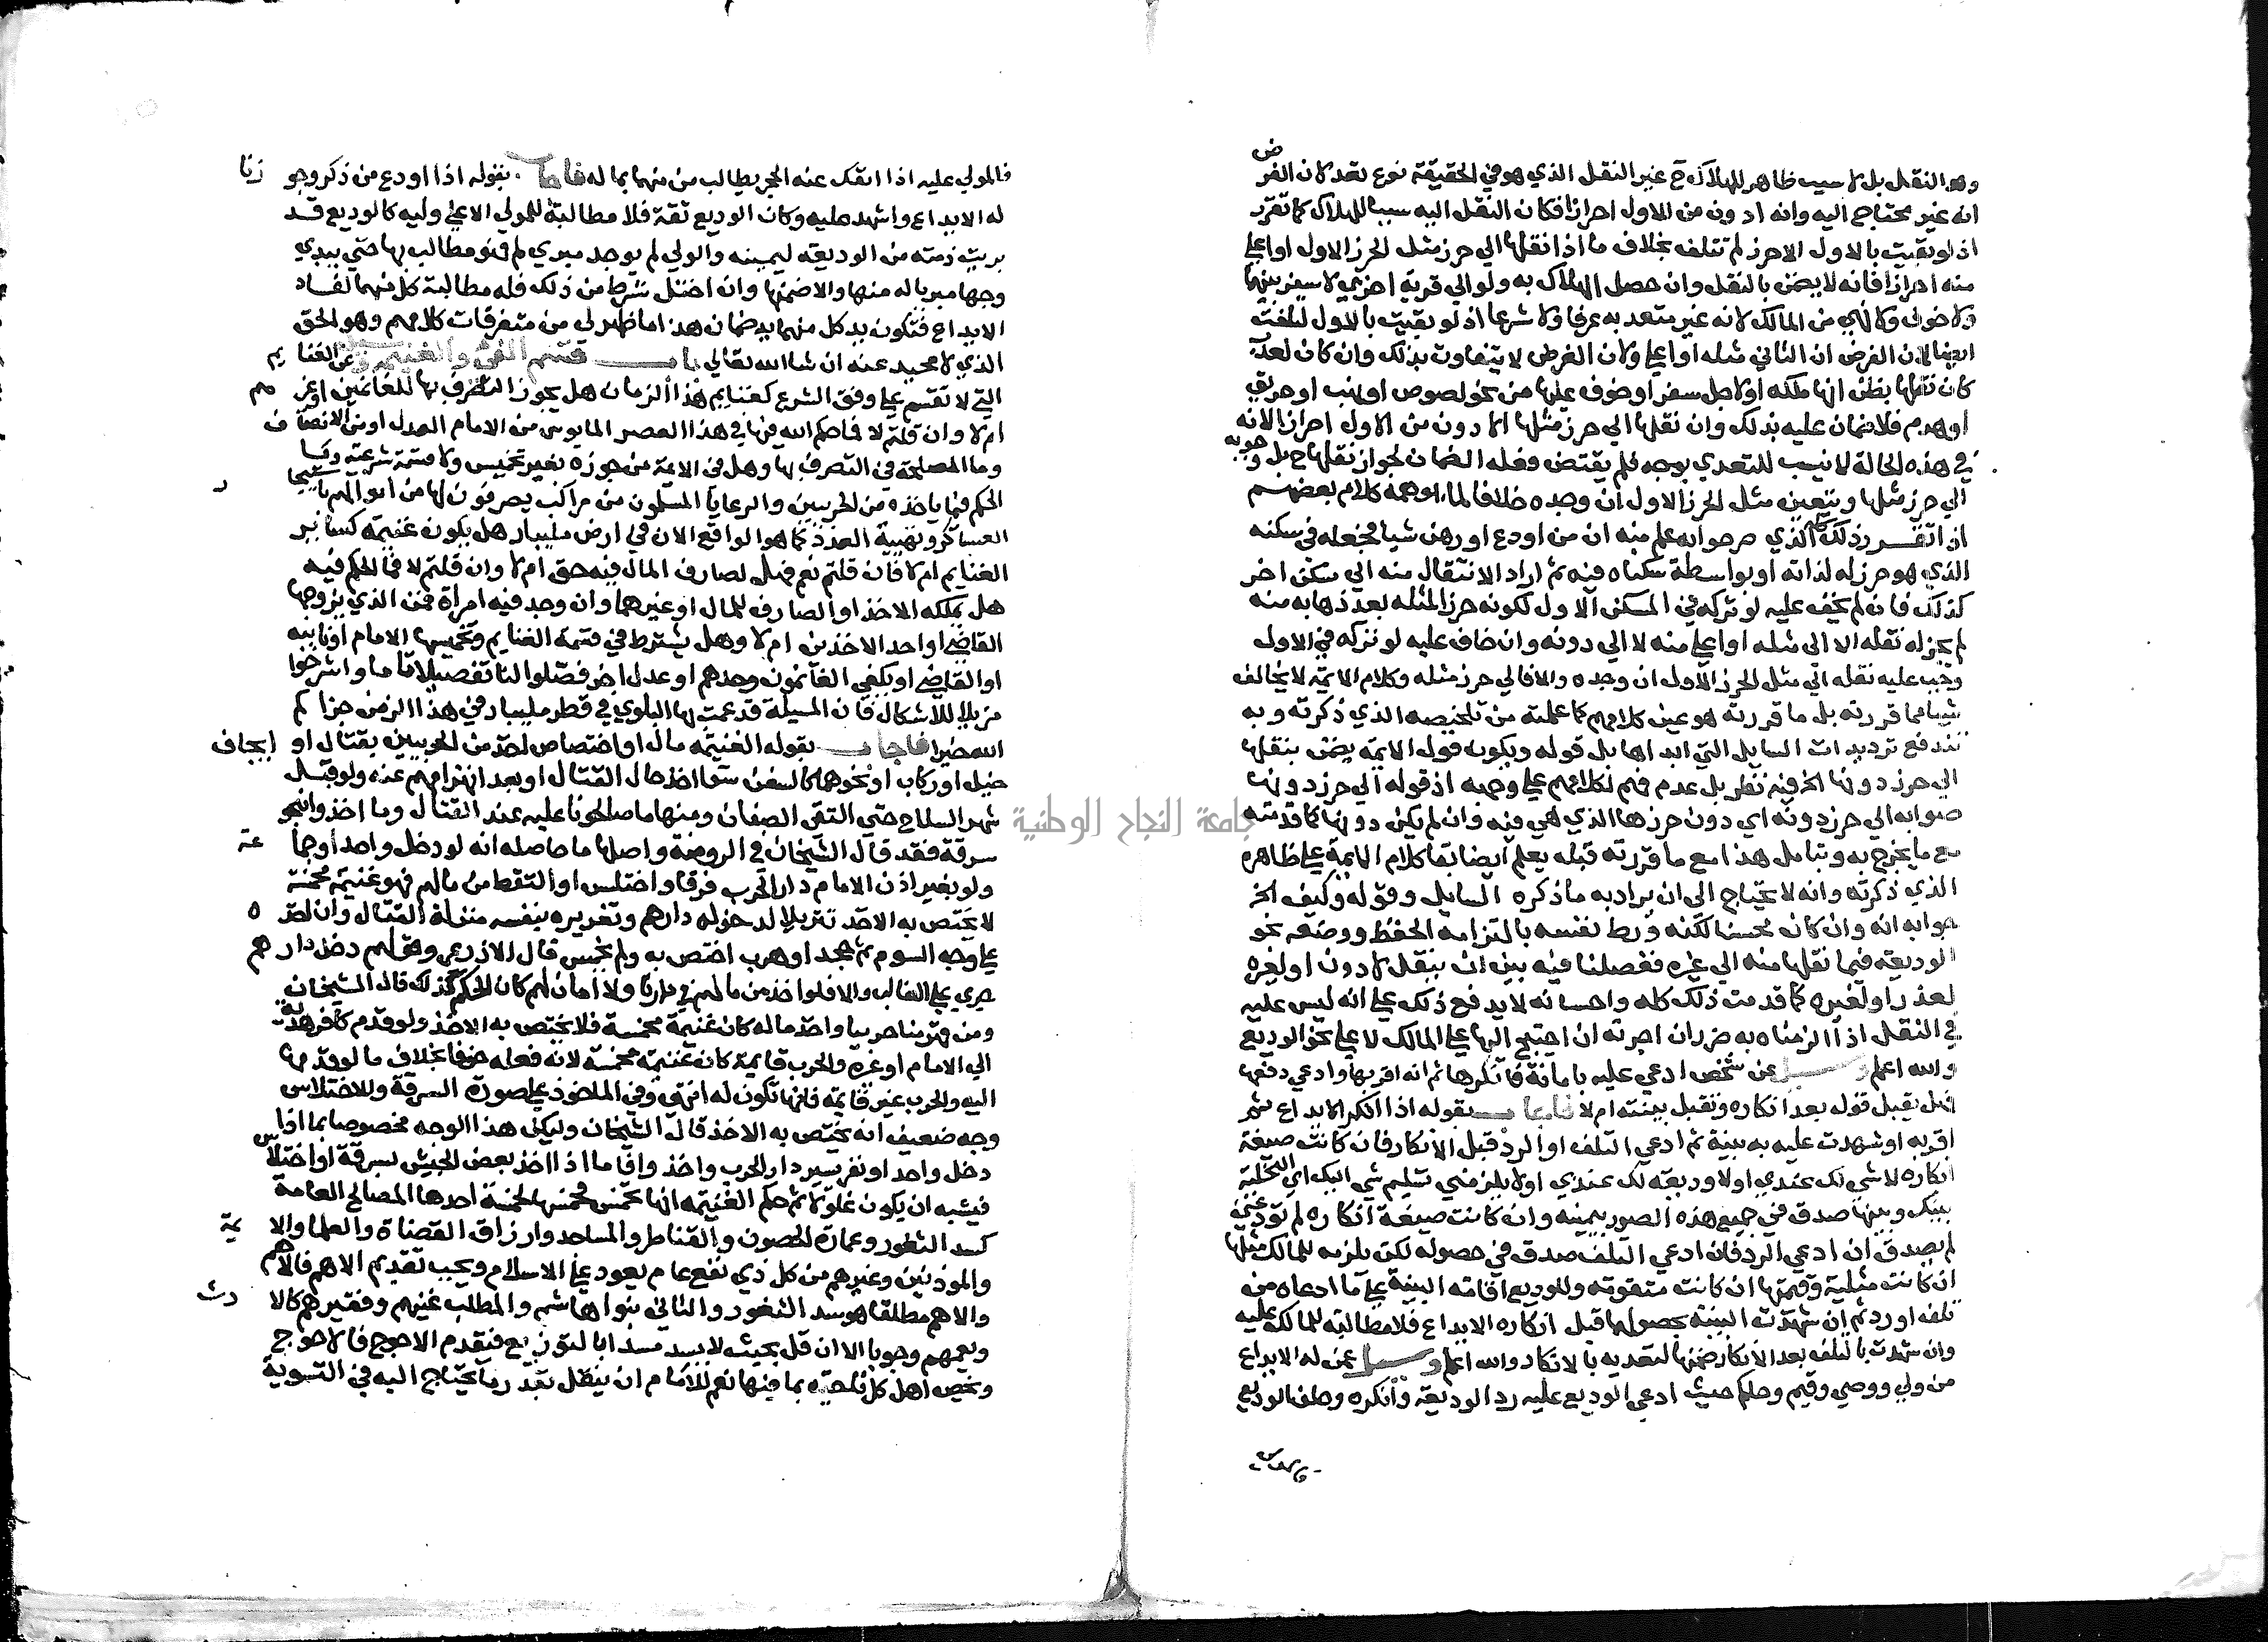 وهو النقل بل لا سبب ظاهر للهلاك ح غير النقل الذي هو في الحقيقة نوع تعد لان الفرض
انه غير محتاج اليه وانه ادون من الاول احرازا فكان النقل اليه سببا للهلاك كما تقرر
اذ لو بقيت بالاول الاحرز لم تتلف بخلاف ما اذا نقلها الي حرز مثل الحرز الاول او اعلي
منه احرازا فانه لا يضمن بالنقل وان حصل الهلاك به ولو الي قرية اخري لا سفر بينهما
ولا خوف ولا نهي من المالك لانه غير متعد به عرفا ولا شرعا اذ لو بقيت بالاول لتلفت
ايضا لان الفرض ان الثاني مثله او اعلي ولان الغرض لا يتفاوت بذلك وان كان لعذر
كان نقلها بظن انها ملكه او لاجل سفر او خوف عليها من نحو لصوص او نهب او حريق
او هدم فلا ضمان عليه بذلك وان نقلها الي حرز مثلها الا دون من الاول احرازا لانه
في هذه الحالة لا ينسب للتعدي بوجه فلم يقتض فعله الضمان لجواز نقلها ح بل وجوبه
الي حرز مثلها ويتعين مثل الحرز الاول ان وجده خلافا لما اوهمه كلام بعضهم
اذا تقرر ذلك كله الذي صرحوا به علم منه ان من اودع او رهن شيا فجعله في سكنه
الذي هو حرز له لذاته او بواسطة سكناه فيه ثم اراد الانتقال منه الي سكن اخر
كذلك فان لم يخف عليه لو تركه في المسكن الاول لكونه حرزا لمثله بعد ذهابه منه
لم يجز له نقله الا الي مثله او اعلي منه لا الي دونه وان خاف عليه لو تركه في الاول
وجب عليه نقله الي مثل الحرز الاول ان وجده والا فالي حرز مثله وكلام الايمة لا يخالف
شيا مما قررته بل ما قررته هو عين كلامهم كما علمته من تلخيصه الذي ذكرته وبه
تندفع ترديدات السايل التي ابداها بل قوله ويكون قول الايمة يضمن بنقلها
الي حرز دونها الخ فيه نظر بل عدم فهم لكلامهم علي وجهه اذ قوله الي حرز دونها
صوابه الي حرز دونه اي دون حرزها الذي هي فيه وان لم يكن دونها كما قدمته
مع ما يخرج به وبتامل هذا مع ما قررته قبله يعلم ايضا بقا كلام الايمة علي ظاهره
الذي ذكرته وانه لا يحتاج الي ان يراد به ما ذكره السايل وقوله وكيف الخ
جوابه انه وان كان محسنا لكنه ورط نفسه بالتزامه الحفظ ووضعه نحو
الوديعة فيما نقلها منه الي غيره ففصلنا فيه بين ان ينقل لا دون او لغيره
لعذر او لغيره كما قدمت ذلك كله واحسانه لا يدفع ذلك علي انه ليس عليه
في النقل اذا الزمناه به ضرر ان اجرته ان احتيج اليها علي المالك لا علي نحو الوديع
والله اعلم وسيل عن شخص ادعي عليه بامانة فانكرها ثم انه اقر بها وادعي دفعها
فهل يقبل قوله بعد انكاره وتقبل بينته ام لا فاجاب بقوله اذا انكر الايداع ثم
اقر به او شهدت عليه به بينة ثم ادعي التلف او الرد قبل الانكار فان كانت صيغة
انكاره لا شي لك عندي او لا وديعة لك عندي او لا يلزمني تسليم شي اليك اي التخلية
بينك وبينها صدق في جميع هذه الصور بيمينه وان كانت صيغة انكاره لم تودعني
لم يصدق ان ادعي الرد فان ادعي التلف صدق في حصوله لكن يلزمه للمالك مثلها
ان كانت مثلية وقيمتها ان كانت متقومة وللوديع اقامة البينة علي ما ادعاه من
تلف او رد ثم ان شهدت البينة بحصولها قبل انكاره الايداع فلا مطالبة للمالك عليه
وان شهدت بالتلف بعد الانكار ضمنها لتعديه بالانكار والله اعلم وسيل عمن له الايداع
من ولي ووصي وقيم وحاكم حيث ادعي الوديع عليه رد الوديعة وانكره وحلف الوديع
فالمولي عليه اذا انفك عنه الحجر يطالب من منهما بماله فاجاب بقوله اذا اودع من ذكر وجوزنا
له الايداع واشهد عليه وكان الوديع ثقة فلا مطالبة للمولي الا علي وليه كالوديع قد
بريت ذمته من الوديعة ليمينه والولي لم يوجد مبري له فهو مطالب بها حتي يبدي
وجها مبريا له منها والا ضمنها وان اختل شرط من ذلك فله مطالبة كل منهما لفساد
الايداع فتكون يد كل منهما يد ضمان هذا ما ظهر لي من متفرقات كلامهم وهو الحق
الذي لا محيد عنه ان شا الله تعالي باب قسم الفيء والغنيمة وسيل عن الغنايم
التي لا تقسم علي وفق الشرع كغنايم هذا الزمان هل يجوز التصرف بها للغانمين او غيرهم
ام لا وان قلتم لا فما حكم الله فيها في هذا العصر المايوس من الامام العدل او من الانصاف
وما المصلحة في التصرف بها وهل في الايمة من جوزه بغير تخميس ولا قسمة شرعية وما
الحكم فيما ياخذه من الحربيين والرعايا المسلمون من مراكب يصرفون لها من اموالهم ما يستجيا
العساكر وتهيية العدد كما هو الواقع الان في ارض مليبار هل يكون غنيمة كساير
الغنايم ام لا فان قلتم نعم فهل لصارف المال فيه حق ام لا وان قلتم لا فما الحكم فيه
هل يملكه الاخذ او الصارف للمال او غيرهما وان وجد فيه امراة فمن الذي يزوجها
القاضي او احد الاخذين ام لا وهل يشترط في قسمة الغنايم وتخميسها الامام او نايبه
او القاضي او يكفي الغانمون وحدهم او عدل اخر فصلوا لنا تفصيلا تاما واشرحوا
مزيلا للاشكال فان المسيلة قد عمت بها البلوي في قطر مليبار في هذا الزمن جزاكم
الله خيرا فاجاب بقوله الغنيمة مال او اختصاص اخذ من الحربيين بقتال او ايجاف
خيل او ركاب او نحوهما كالسفن سوا اخذ حال القتال او بعد انهزامهم عنه ولو قبل
شهر السلاح حتي التقي الصفان ومنها ما صالحونا عليه عند القتال وما اخذ وانجو
سرقة فقد قال الشيخان في الروضة واصلها ما حاصله انه لو دخل واحد او جماعة
ولو بغير اذن الامام دار الحرب فرقا واختلس او التقط من مالهم فهو غنيمة مخمسة
لا يختص به الاخذ تنزيلا لدخوله دارهم وتغريره بنفسه منزلة القتال وان اخذه
علي وجه السوم ثم جحد او هرب اختص به ولم يخمس قال الاذرعي وقولهم دخل دارهم
جري علي الغالب والا فلو اخذ من مالهم في دارنا ولا امان لهم كان الحكم كذلك قال الشيخان
ومن قهر منا حربيا واخذ ماله كان غنيمة مخمسة فلا يختص به الاخذ ولو قدم كافر هدية
الي الامام او غيره والحرب قايمة كان غنيمة مخمسة لانه فعله خوفا بخلاف ما لو قدمها
اليه والحرب غير قايمة فانها تكون له انتهي وفي الماخوذ علي صورة السرقة والاختلاس
وجه ضعيف انه يختص به الاخذ قال الشيخان وليكن هذا الوجه مخصوصا بما اذا
دخل واحد او نفر يسير دار الحرب واخذ واما اذا اخذ بعض الجيش بسرقة او اختلاس
فيشبه ان يكون غلولا ثم حكم الغنيمة انها تخمس فخمسها لخمسة احدها المصالح العامة
كسد الثغور وعمارة الحصون والقناطر والمساجد وارزاق القضاة والعلما والايمة
والموذنين وغيرهم من كل ذي نفع عام يعود علي الاسلام ويجب تقديم الاهم فالاهم
والاهم مطلقا هو سد الثغور والثاني بنوا هاشم والمطلب غنيهم وفقيرهم كالارث
ويعمهم وجوبا الا ان قل بحيث لا يسد مسدا بالتوزيع فيقدم الاحوج فالاحوج
ويخص اهل كل ناحية بما فيها نعم للامام ان ينقل بقدر ما يحتاج اليه في التسوية
جامعة النجاح الوطنية